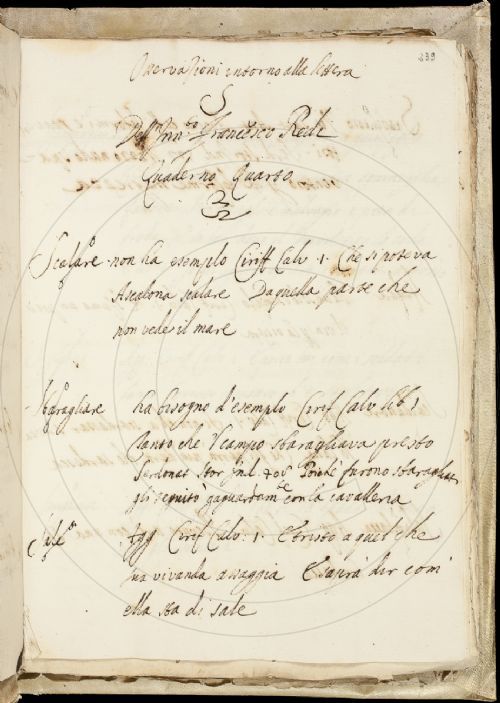 239
Osservazioni intorno alla lettera
S
Dell'Inn.to Francesco Redi
Quaderno Quarto
Scalare. non ha esempio Ciriff Calv. 1. Che si poteva
Ascalona scalare Da quella parte che
non vede il mare
Sbaragliare ha bisogno d'esempio Cirif Calv lib 1
Tanto che 'l campo sbaragliava presto
Serdonat Stor Poiché furono sbaragliati
gli seguitò con la cavalleria
Cirif Calv. 1. E tristo a quel che
sua vivanda assaggia E saprà dir com'
ella sta di sale